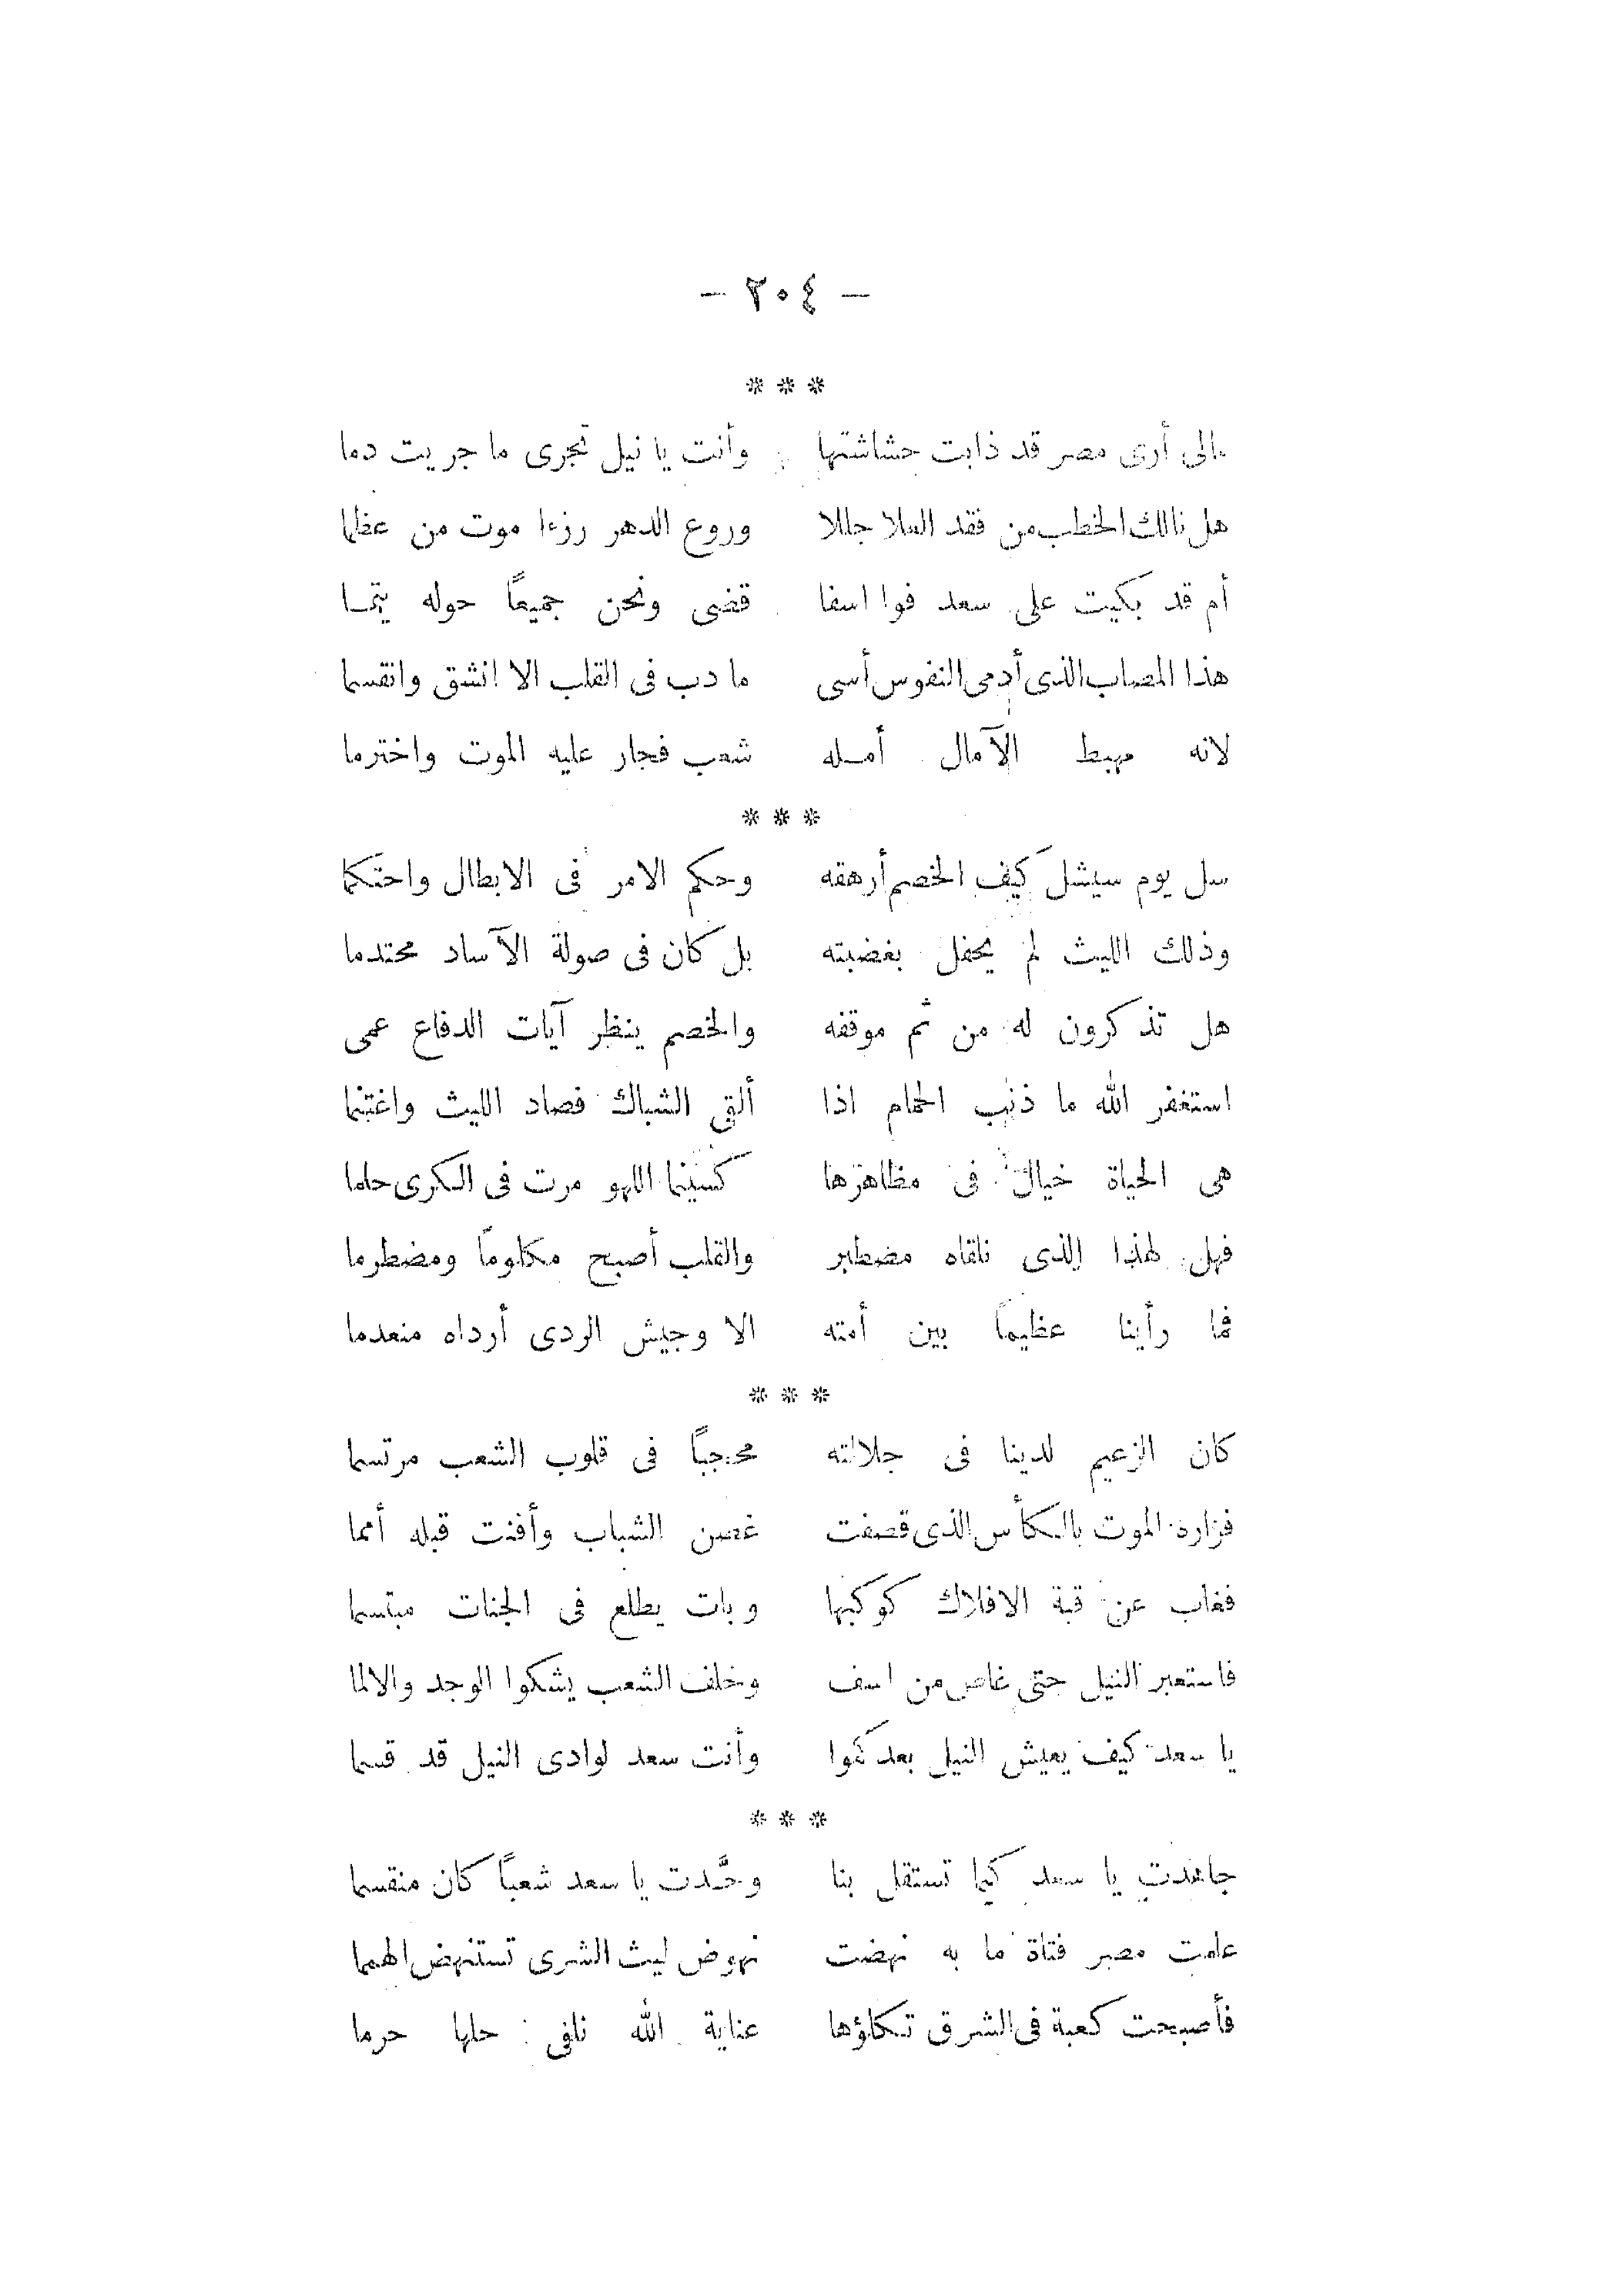 — ٢٠٤ —
* * *
مالى أرى مصر قد ذابت حشاشتها وأنت يا نيل تجرى ما جريت دما
هل نالك الخطب من فقد العلا جللا وروع الدهر رزءا موت من عظما
أم قد بكيت على سعد فوا اسفا قضى ونحن جميعاً حوله يتما
هذا المصاب الذى أدمى النفوس أسى ما دب فى القلب الا انشق وانقسما
لانه مهبط الآمال أمله شعب فجار عليه الموت واخترما
* * *
سل يوم سيشل كيف الخصم أرهقه وحكم الامر فى الابطال واحتكما
وذلك الليث لم يحفل بغضبته بل كان فى صولة الآساد محتدما
هل تذكرون له من ثم موقفه والخصم ينظر آيات الدفاع عمى
استغفر الله ما ذنب الحمام اذا ألقى الشباك فصاد الليث واغتنما
هى الحياة خيال فى مظاهرها كسينما اللهو مرت فى الكرى حلما
فهل لهذا الذى نلقاه مضطبر والقلب أصبح مكلوماً ومضطرما
فما رأينا عظيماً بين أمته الا وجيش الردى أرداه منعدما
* * *
كان الزعيم لدينا فى جلالته محجباً فى قلوب الشعب مرتسما
فزاره الموت بالكأس الذى قصفت غصن الشباب وأفنت قبله أمما
فغاب عن قبة الافلاك كوكبها وبات يطلع فى الجنات مبتسما
فاستعبر النيل حتى غاص من اسف وخلف الشعب يشكوا الوجد والالما
يا سعد كيف يعيش النيل بعدكموا وأنت سعد لوادى النيل قد قسما
* * *
جاهدت يا سعد كيما تستقل بنا وحَّدت يا سعد شعباً كان منقسما
علمت مصر فتاة ما به نهضت نهوض ليث الشرى تستنهض الهمما
فأصبحت كعبة فى الشرق تكلؤها عناية الله نلفى حلها حرما